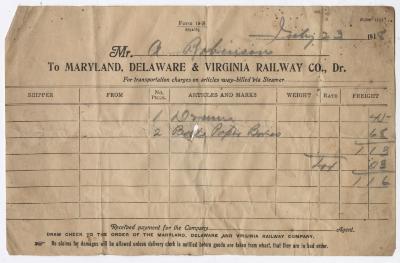 Form 19-B
July 23 1918
Mr. A Robinson
To MARYLAND, DELAWARE & VIRGINIA RAILWAY CO., Dr.
For transportation charges on articles way-billed via Steamer
SHIPPER FROM No. Pkgs. ARTICLES AND MARKS WEIGHT RATE FREIGHT
1 45
2 Bdls Paper Boxes 68
1 13
Tax 03
1 16
Received payment for the Company. Agent.
DRAW CHECK TO THE ORDER OF THE MARYLAND, DELAWARE AND VIRGINIA RAILWAY COMPANY.
No claims for damages will be allowed unless delivery clerk is notified before goods are taken from wharf, that they are in bad order.